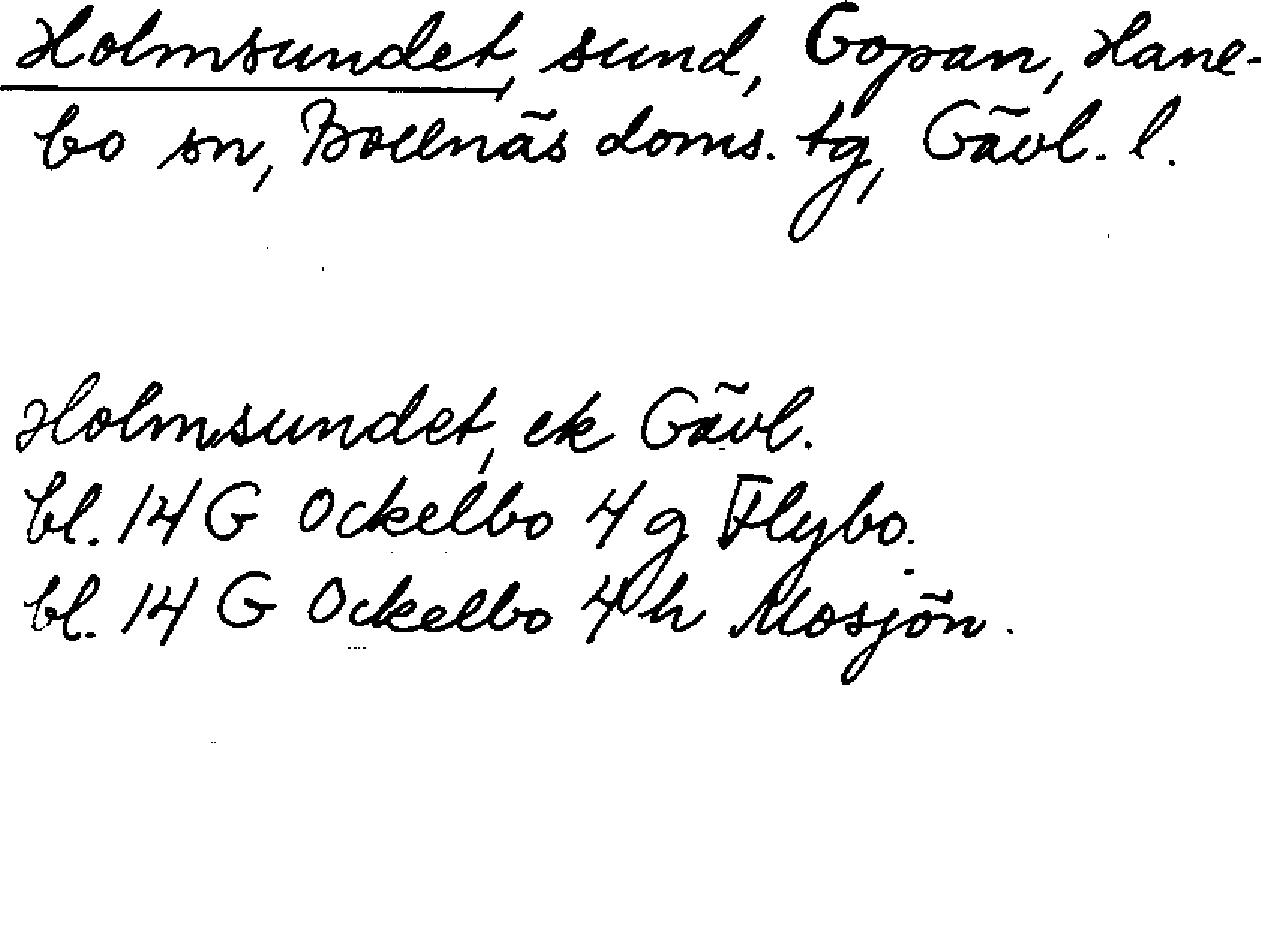 Holmsundet, sund, Gopan, Hane-
bo sn, Bollnäs doms. tg, Gävl. l.
Holmsundet, ek Gävl.
bl. 14 G Ockelbo 4 g Flybo.
bl. 14 G Ockelbo 4 h Mosjön.